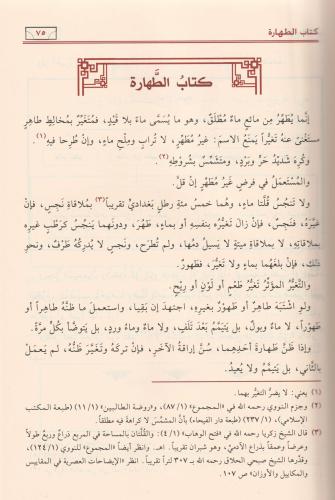 كتاب الطهارة
٧٥
كتابُ الطَّهارة
إنَّما يُطَهِّرُ مِن مائعٍ ماءٌ مُطْلَقٌ، وهو ما يُسَمَّى ماءً بلا قَيْدٍ، فمُتَغَيِّرٌ بمُخالِطٍ طاهِرٍ
مستَغْنىً عنهُ تَغَيُّراً يَمنَعُ الاسمَ: غيرُ مُطَهِّرٍ، لا تُرابٍ ومِلْحِ ماءٍ، وإنْ طُرِحا فيهِ(١).
وكُرِهَ شَديدُ حَرٍّ وبَرْدٍ، ومتَشَمِّسٌ بشُروطِهِ(٢).
والمُستَعْمَلُ في فرضٍ غَيرُ مُطَهِّرٍ إنْ قلَّ.
ولا تَنجُسُ قُلَّتا ماءٍ، وهما خمس مئةِ رِطلٍ بَغداديٍّ تقريباً(٣) بمُلاقاةِ نَجِسٍ، فإنْ
غيَّرَه، فنَجِسٌ، فإنْ زالَ تَغَيُّرُه بنفسِهِ أو بماءٍ، طَهُرَ، ودونَهما يَنجُسُ كرَطْبٍ غيرِهِ
بملاقاتِهِ، لا بملاقاةِ ميتَةٍ لا يَسيلُ دمُها، ولم تُطرَح، ونَجِسٍ لا يُدرِكُهُ طَرْفٌ، ونحوِ
ذلك، فإنْ بلغَهُما بماءٍ ولا تَغَيُّرَ، فطَهورٌ.
والتَّغيُّرُ المؤثِّرُ تَغَيُّرُ طَعْمٍ أو لَوْنٍ أو رِيْحٍ.
ولو اشْتَبَهَ طاهِرٌ أو طَهُورٌ بغيرِهِ، اجتهدَ إن بَقِيا، واستعملَ ما ظنَّهُ طاهراً أو
طهوراً، لا ماءٌ وبولٌ، بل يتيمَّمُ بعدَ تَلَفٍ، ولا ماءٌ وماءُ وردٍ، بل يتوضَّأُ بكُلٍّ مرَّةً.
وإذا ظنَّ طَهارةَ أحدِهِما، سُنَّ إراقةُ الآخَرِ، فإنْ تركَهُ وتَغَيَّرَ ظنُّهُ، لم يَعمَلْ
بالثّاني، بل يتيمَّمُ ولا يُعيدُ.
(١) يعني: لا يضرُّ التغيُّر بهما.
(٢) وجزم النووي رحمه الله في «المجموع» (١/ ٨٧)، و«روضة الطالبين» (١/ ١١) (طبعة المكتب
الإسلامي)، (١/ ٢٣٧) (طبعة دار الفيحاء) بأنَّ المشمَّس لا كراهة فيه مطلقاً.
(٣) قال الشيخ زكريا رحمه الله في «فتح الوهاب» (١/ ٤): والقُلَّتان بالمساحة في المربع ذراعٌ وربعٌ طولاً
وعرضاً وعمقاً بذراع الآدمي، وهو شبران تقريباً. اهـ. وانظر أيضاً «المجموع» للنووي (١/ ١٢٤)،
وقدَّرها الشيخ صبحي الحلاق رحمه الله بـ ٣٠٧ لتراً تقريباً. انظر «الإيضاحات العصرية في المقاييس
والمكاييل والأوزان» ص ١٠٧.